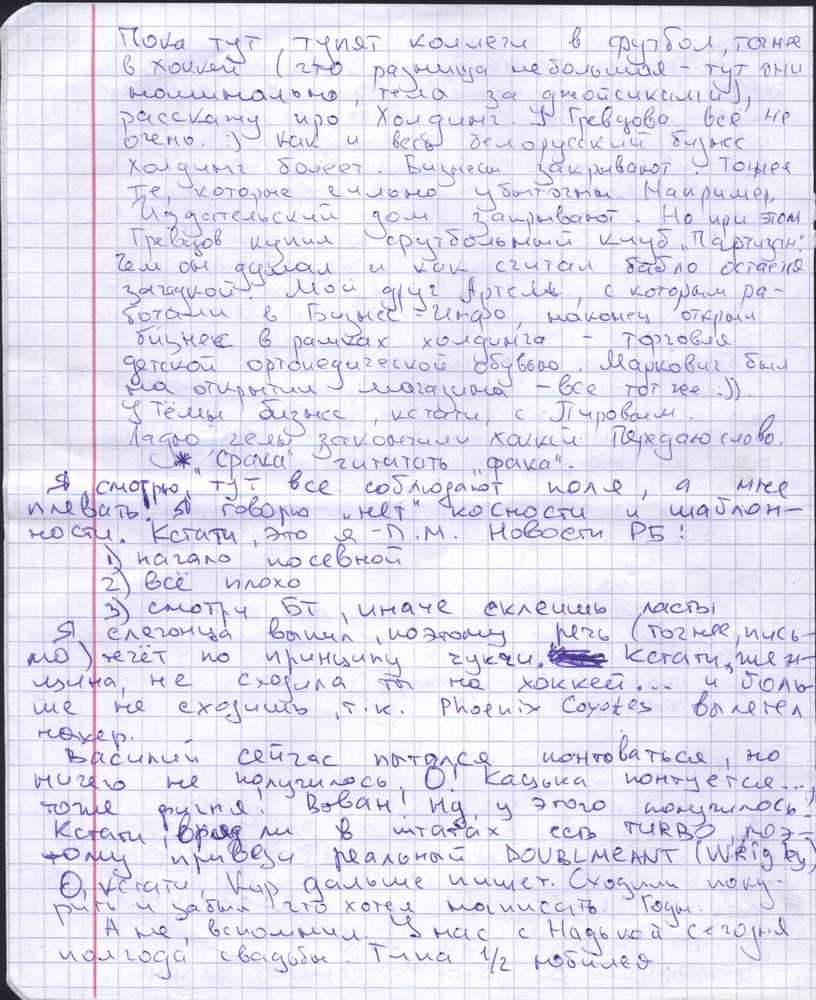 Пока тут тупят коллеги в футбол, точнее
в хоккей (что разница небольшая - тут они
номинально, тела за джойсиками),
расскажу про Холдинг. У Гревцова все не
очень. :) как и весь белорусский бизнес
холдинг болеет. Бизнесы закрывают. Точнее
те, которые сильно убыточны. Например,
Издательский дом закрывают. Но при этом
Гревцов купил футбольный клуб „Партизан“.
Чем он думал и как считал бабло остаётся
загадкой. Мой друг Артель, с которым ра-
ботали в Бизнес-Инфо, наконец открыл
бизнес в рамках холдинга - торговля
детской ортопедической обувью. Маркович был
на открытии магазина - все тот же :)).
У Тёмы бизнес, кстати, с Пировым.
Ладно челы закончили хоккей. Передаю слово.
* „Срака“ читать „фака“.
Я смотрю, тут все соблюдают поля, а мне
плевать! Я говорю „нет“ косности и шаблон-
ности. Кстати, это я - П.М. Новости РБ:
1) начало посевной
2) всё плохо
3) смотри БТ, иначе склеишь ласты
Я слегонца выпил, поэтому речь (точнее, пись-
мо) течёт по принципу чукчи. Кстати, жен-
щина, не сходила ты на хоккей... и боль-
ше не сходишь, т.к. Phoenix Coyotes вылетел
нахер.
Василий сейчас пытался понтоваться, но
ничего не получилось. О! Кацька понтуется...,
тоже фигня! Вован! Ну, у этого получилось.
Кстати, вряд ли в штатах есть TURBO, поэ-
тому привези реальный DOUBLMEANT (Wrigley)
О, кстати, Кир дальше пишет. Сходили поку-
рить и забыл что хотел написать. Годы...
А не, вспомнил. У нас с Надькой сегодня
полгода свадьбы. Типа 1/2 юбилея.